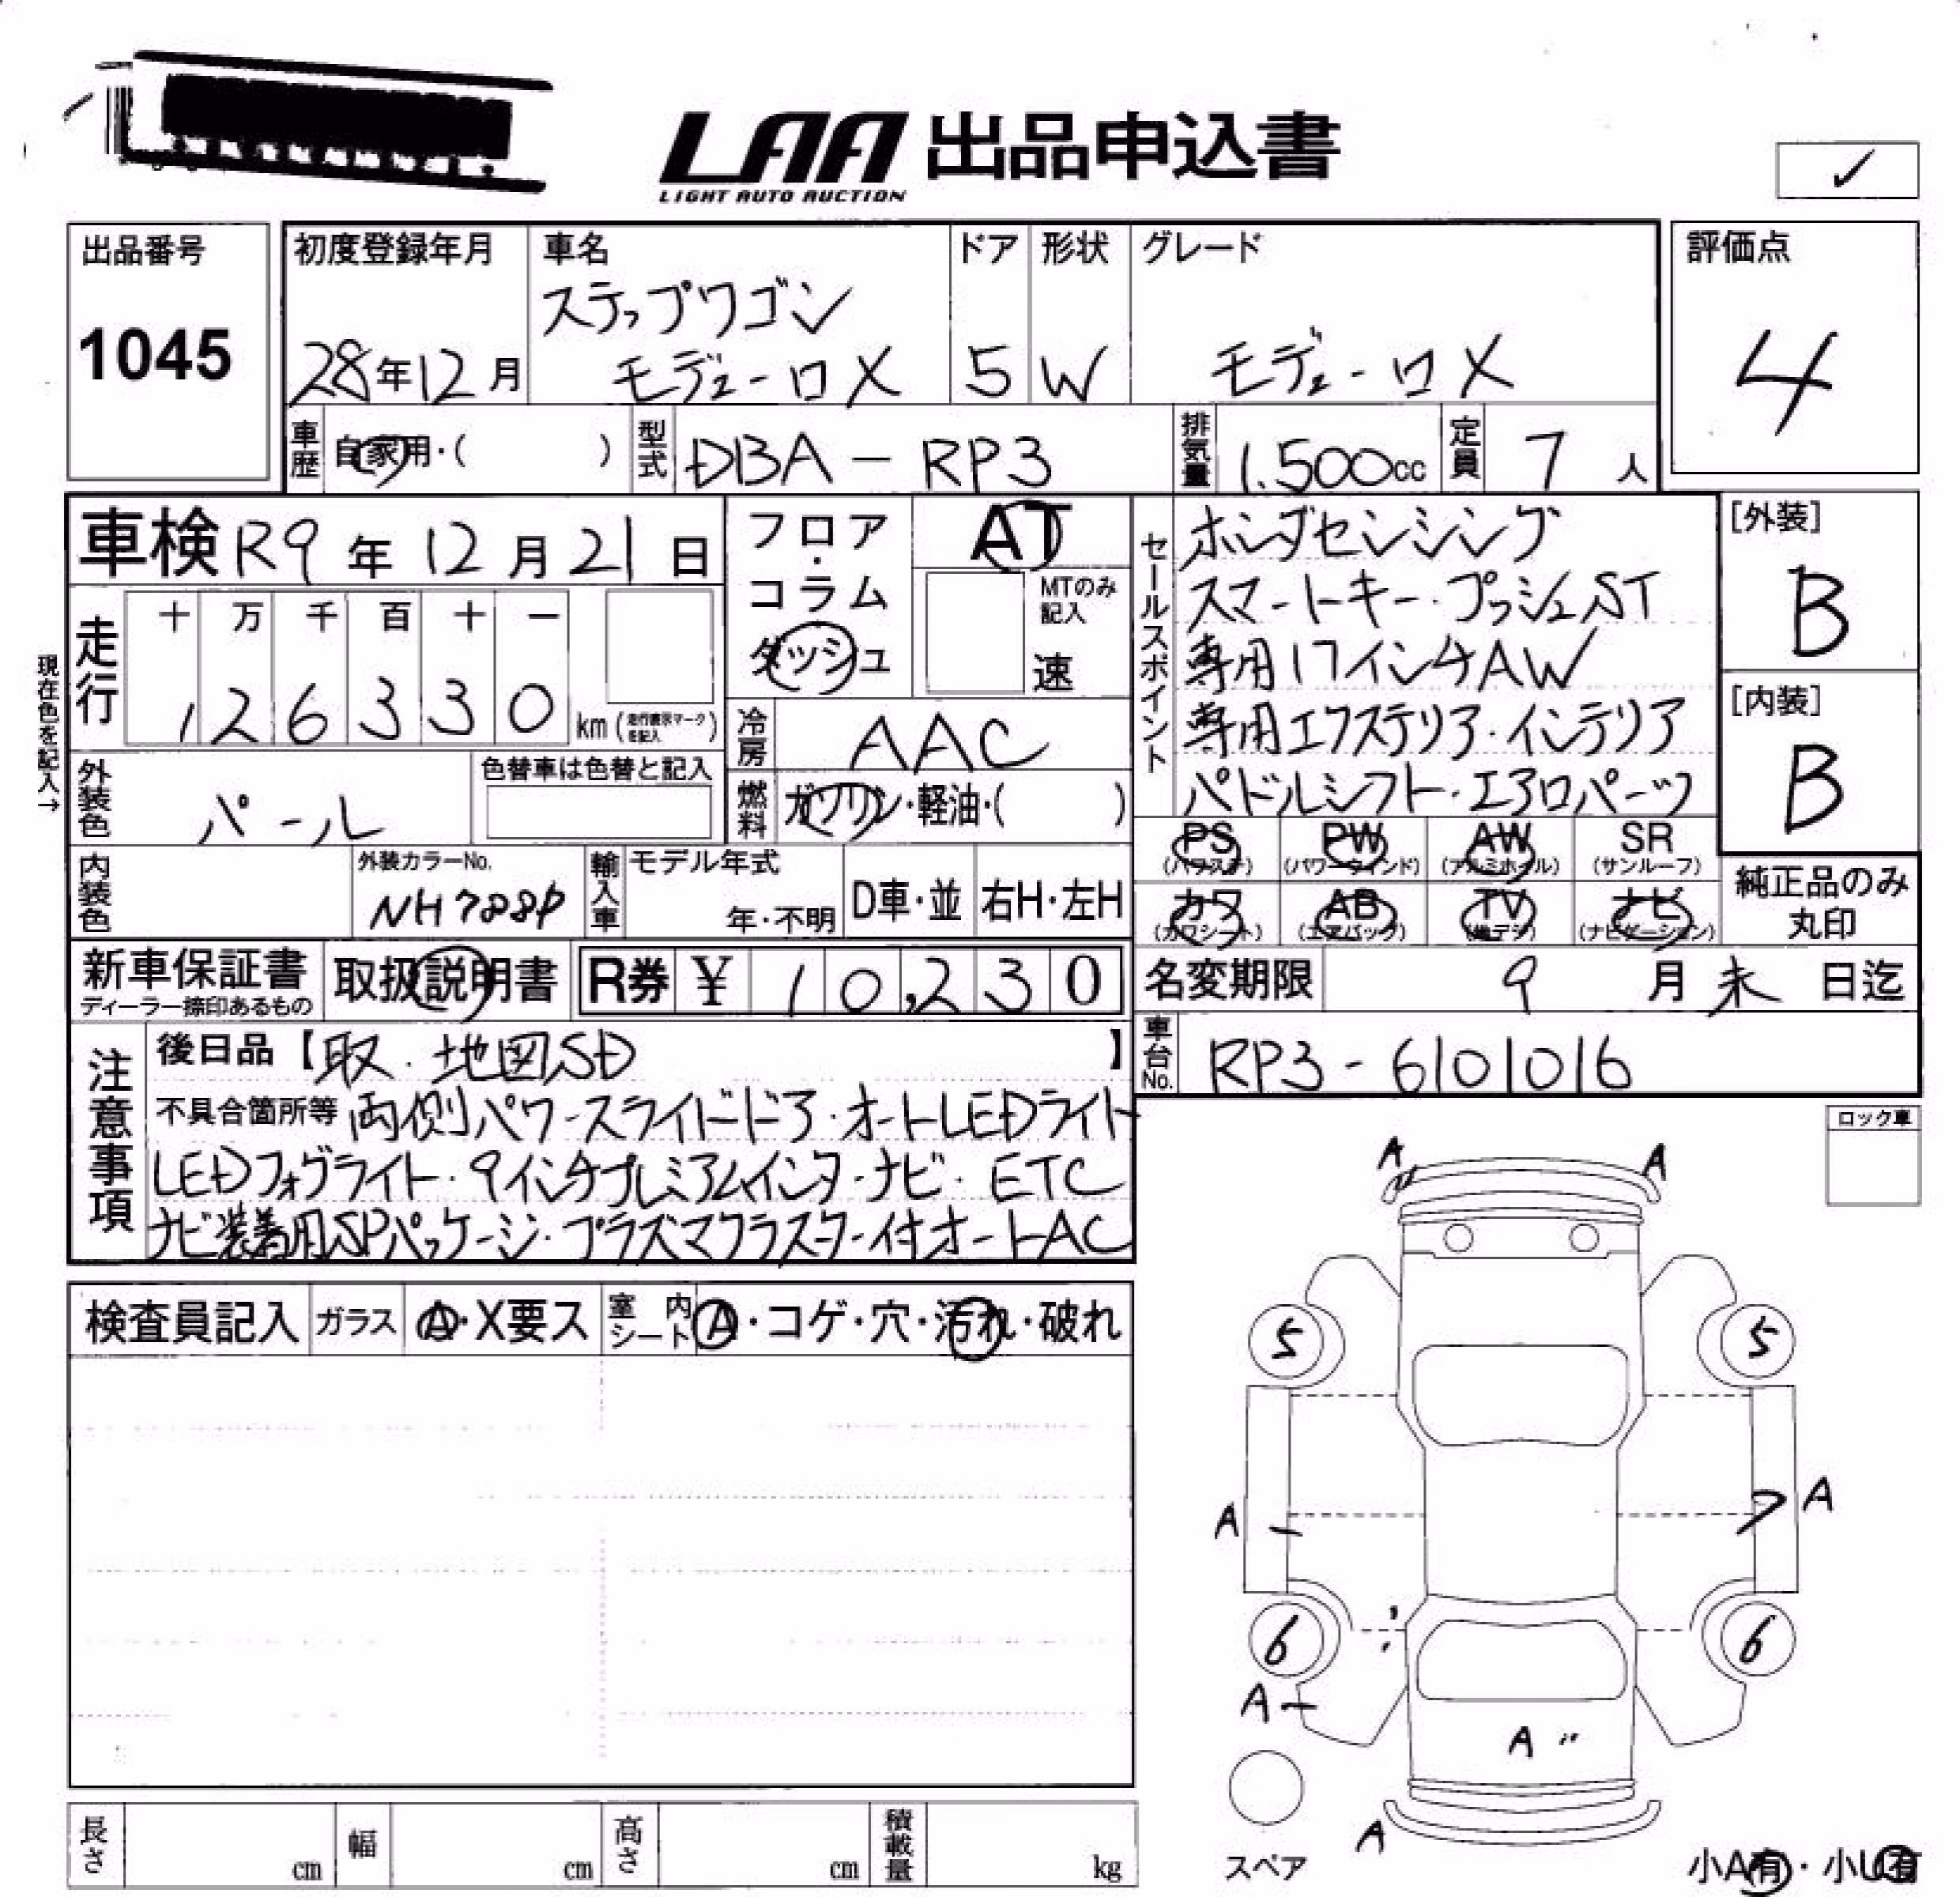 LAA 出品申込書
LIGHT AUTO AUCTION
✓
出品番号
1045
初度登録年月
28年12月
車名
ステップワゴン
モデューロX
ドア
5
形状
W
グレード
モデューロX
評価点
4
車歴 自家用・( )
型式 DBA-RP3
排気量 1.500cc
定員 7人
車検 R9年12月21日
フロア・コラム
ダッシュ
AT
MTのみ記入
速
セールスポイント
ホンダセンシング
スマートキー・プッシュST
専用17インチAW
専用エクステリア・インテリア
パドルシフト・エアロパーツ
[外装]
B
[内装]
B
走行
十 万 千 百 十 一
1 2 6 3 3 0 km (走行表示マークを記入)
現在色を記入→
冷房 AAC
外装色 パール
色替車は色替と記入
燃料 ガソリン・軽油・( )
PS (パワステ) PW (パワーウィンド) AW (アルミホイル) SR (サンルーフ)
カワ (カワシート) AB (エアバッグ) TV (地デジ) ナビ (ナビゲーション)
純正品のみ丸印
内装色
外装カラーNo.
NH788P
輸入車 モデル年式
年・不明
D車・並
右H・左H
新車保証書
ディーラー捺印あるもの
取扱説明書
R券 ¥ 10,230
名変期限 9月末日迄
注意事項
後日品【取・地図SD】
車台No. RP3-6101016
不具合箇所等 両側パワースライドドア・オートLEDライト
LEDフォグライト・9インチプレミアムインターナビ・ETC
ナビ装着用SPパッケージ・プラズマクラスター付オートAC
ロック車
検査員記入 ガラス A・X要ス 室内シート A・コゲ・穴・汚れ・破れ
A A
5 5
A A
6 6
A
A
A
スペア
小A有・小U有
長さ cm 幅 cm 高さ cm 積載量 kg